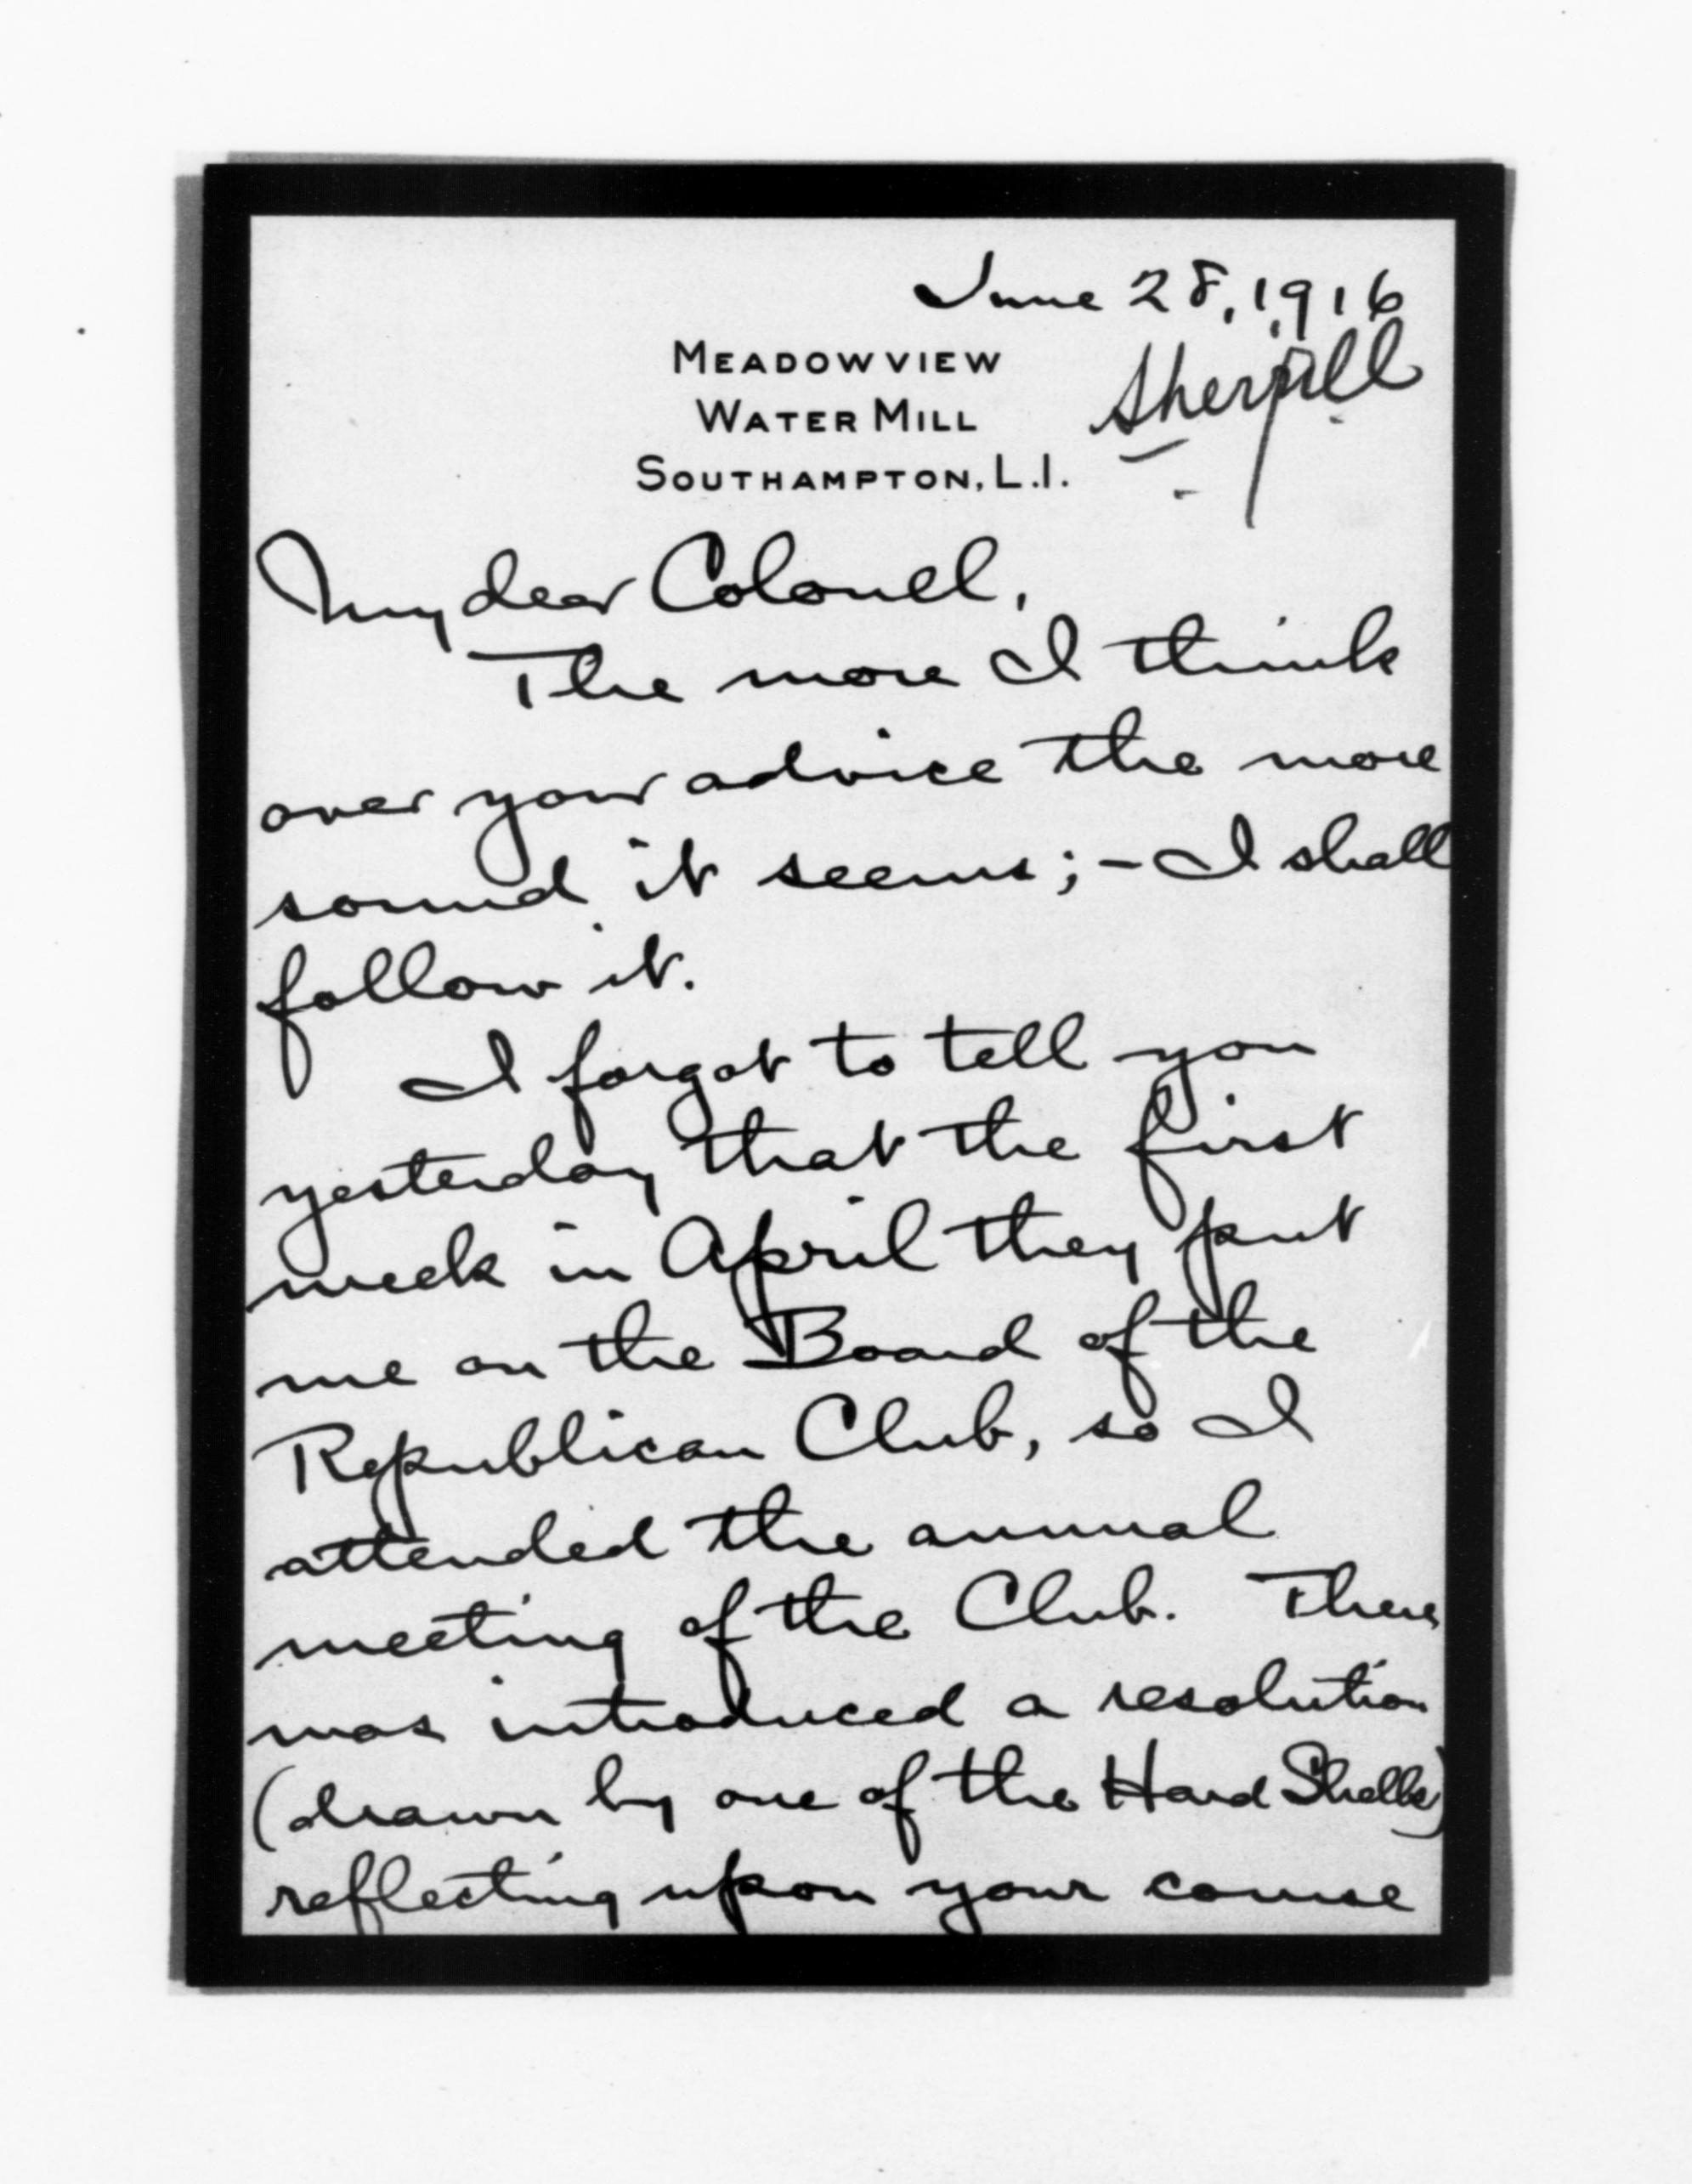 June 28, 1916
MEADOWVIEW
WATER MILL
SOUTHAMPTON, L.I.
Sherrill
My dear Colonel,
The more I think
over your advice the more
sound it seems; - I shall
follow it.
I forgot to tell you
yesterday that the first
week in April they put
me on the Board of the
Republican Club, so I
attended the annual
meeting of the Club. There
was introduced a resolution
(drawn by one of the Hard Shells)
reflecting upon your course